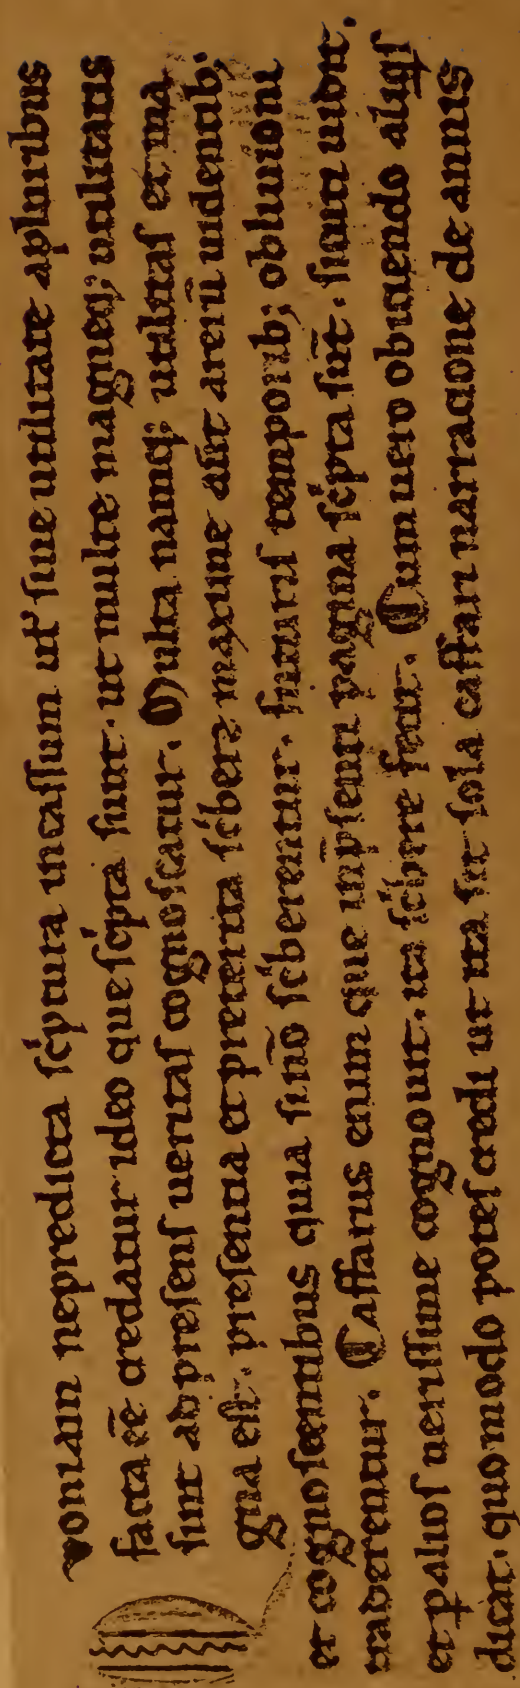 Quoniam nepredicta sc̄ptura incassum ut̓ sine utilitate apluribus
facta eē credatur ideo que sc̄pta sunt. ut multe magneq; utilitatis
sint ad presens ueritas cognoscatur. Multa namq; utilitas et ma
gna est. presentia et preterita sc̄bere maxime aūt arenū uidentib;
et cognoscentibus quia si nō sc̄berentur. futuris temporib; obliuioni
traderentur. Caffarus enim que inp̄senti pagina sc̄pta sūt. sicuti uidit
et palios uerissime cognouit. ita sc̄bere fecit. Cum uero obiciendo aliq̄s
dicat. quo modo potest credi ut ita sit sola caffari narracione de annis